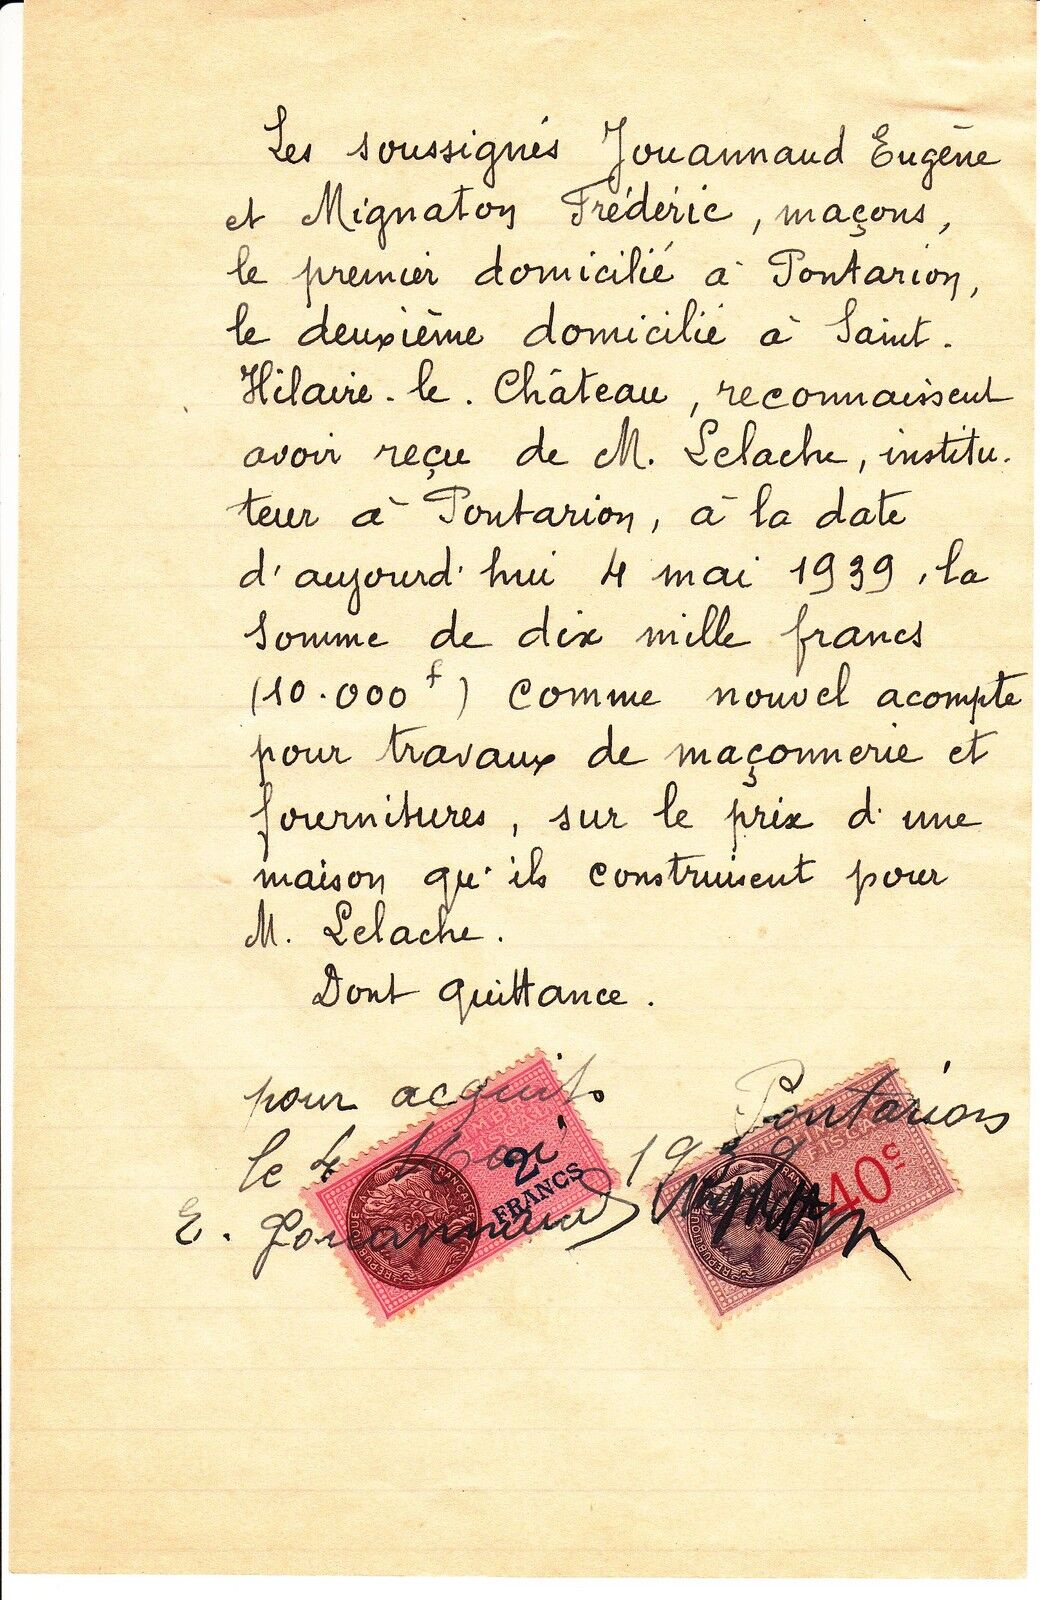 Les soussignés Jouannaud Eugène
et Mignaton Frédéric, maçons,
le premier domicilié à Pontarion,
le deuxième domicilié à Saint-
Hilaire-le-Château, reconnaissent
avoir reçu de M. Lelache, institu-
teur à Pontarion, à la date
d'aujourd'hui 4 mai 1939, la
somme de dix mille francs
(10.000 f) comme nouvel acompte
pour travaux de maçonnerie et
fournitures, sur le prix d'une
maison qu'ils construisent pour
M. Lelache.
Dont quittance.
pour acquit Pontarion
le 4 Mai 1939
E. Jouannaud
2 FRANCS
FISCAL
40c
RÉPUBLIQUE FRANÇAISE
RÉPUBLIQUE